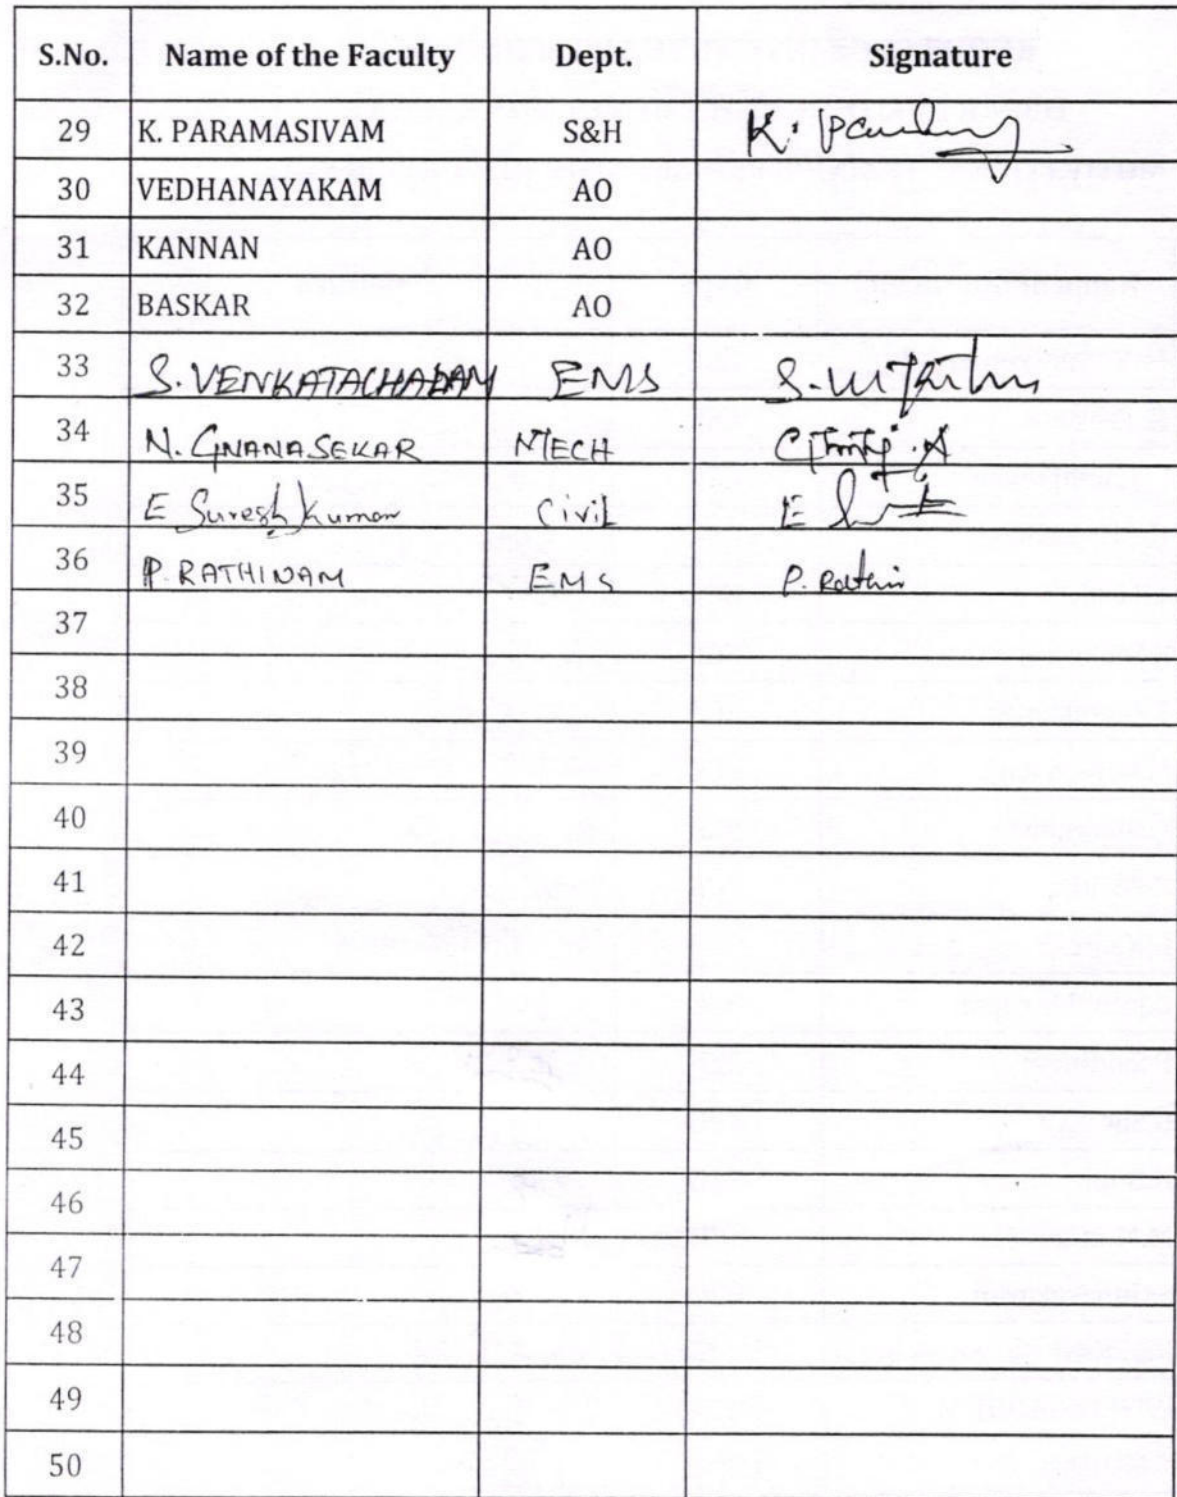 S.No. Name of the Faculty Dept. Signature
29 K. PARAMASIVAM S&H K.
30 VEDHANAYAKAM AO
31 KANNAN AO
32 BASKAR AO
33 S. VENKATACHALAM EMS S.
34 N. GNANASEKAR MTECH
35 E Suresh Kumar Civil E
36 P. RATHINAM EMS P. Rathin
37
38
39
40
41
42
43
44
45
46
47
48
49
50